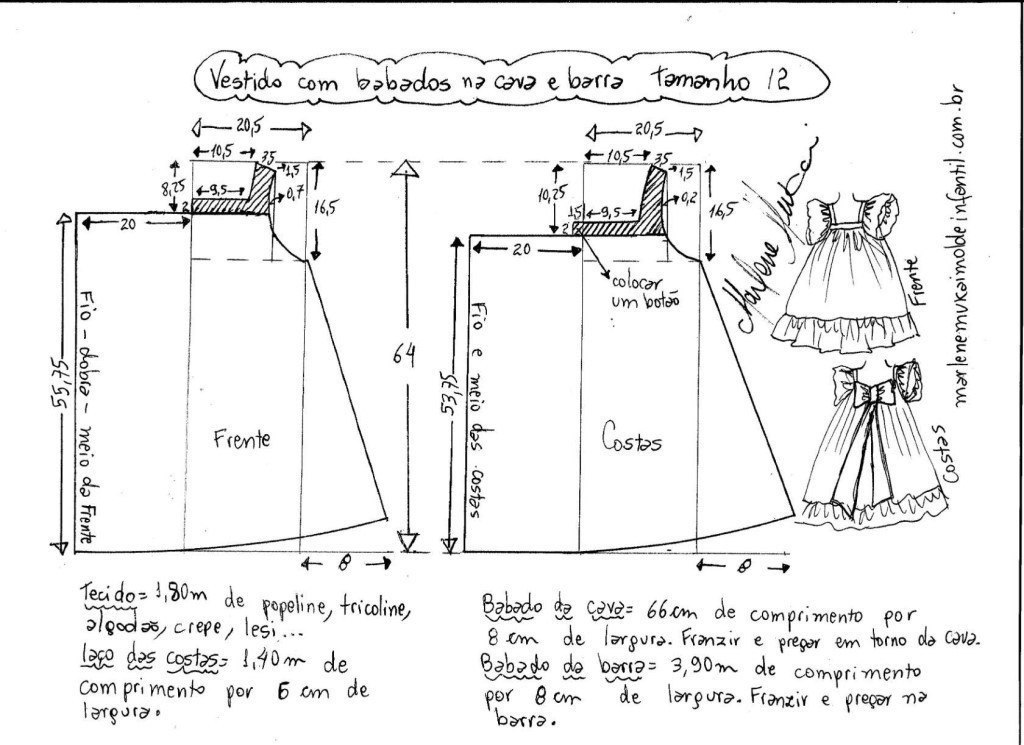 Vestido com babados na cava e barra tamanho 12
20,5
10,5
3,5
1,5
8,25
9,5
2
0,7
16,5
20
Fio - dobra - meio da Frente
55,75
Frente
8
64
20,5
10,5
3,5
1,5
10,25
1,5
9,5
2
0,2
16,5
20
colocar
um botão
Fio e meio das costas
53,75
Costas
8
Frente
Costas
marlenemukaimoldeinfantil.com.br
Marlene Mukai
Tecido = 1,80m de popeline, tricoline,
algodão, crepe, lesi...
laço das costas = 1,40m de
comprimento por 6 cm de
largura.
Babado da cava = 66 cm de comprimento por
8 cm de largura. Franzir e pregar em torno da cava.
Babado da barra = 3,90m de comprimento
por 8 cm de largura. Franzir e pregar na
barra.